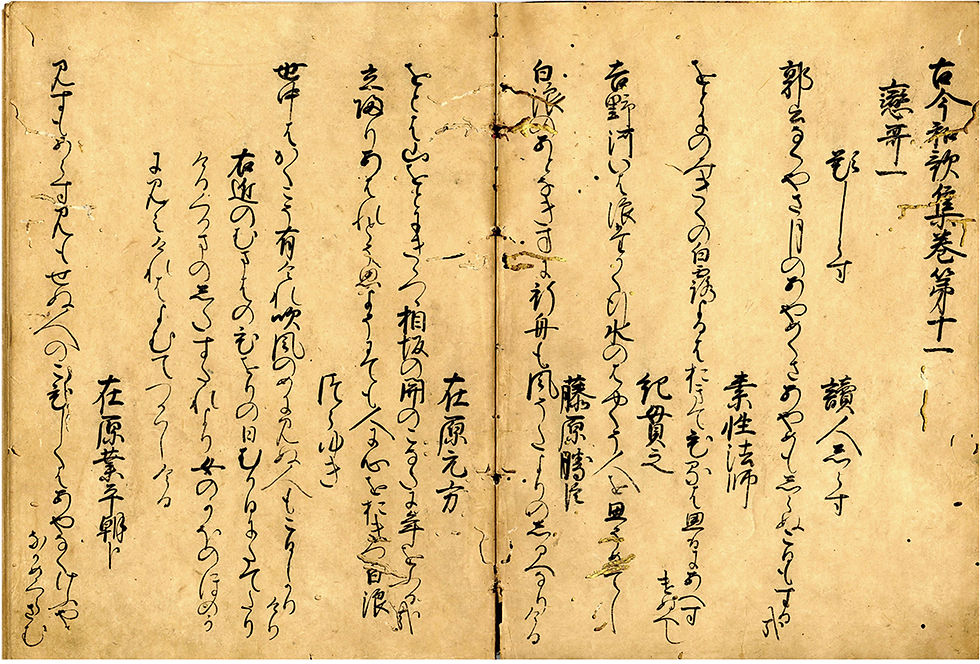 古今和歌集巻第十一
戀哥一
題しらす　讀人しらす
郭公なくやさ月のあやめくさあやめもしらぬこひもする哉
素性法師
をとにのみきくの白露よるはおきてひるは思ひにあへす
けぬへし
紀貫之
吉野河いは浪たかく行水のはやくそ人を思そめてし
藤原勝臣
白浪のあとなき方に行舟も風そたよりのしるへなりける
在原元方
をとは山をとにきゝつゝ相坂の関のこなたに年をふる哉
立帰りあはれとそ思よそにても人に心をおきつ白浪
つらゆき
世中はかくこそ有けれ吹風のめに見ぬ人もこひしかり
けり
右近のむまはのひをりの日むかひにたてたり
けるくるまのしたすたれより女のかほのほのか
に見えけれはよむてつかはしける
在原業平朝臣
見すもあらす見もせぬ人のこひしくはあやなくけふや
なかめくらさむ